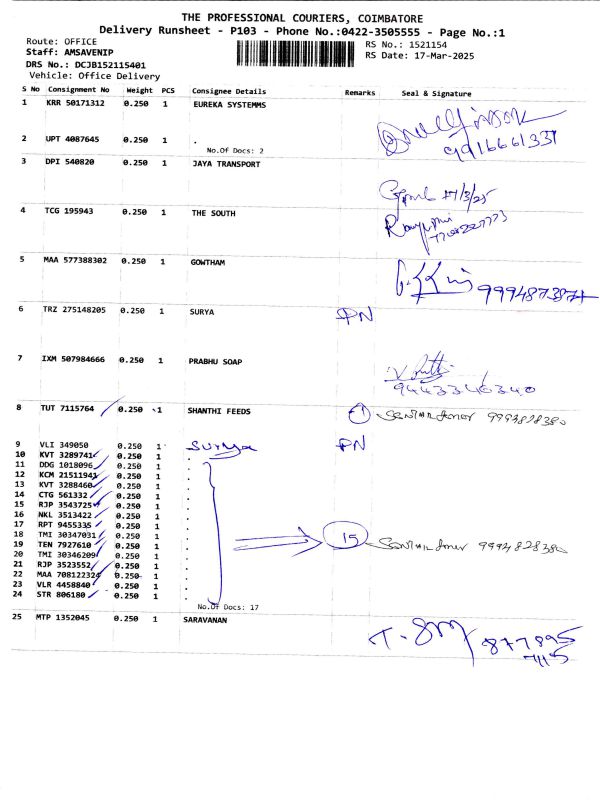 THE PROFESSIONAL COURIERS, COIMBATORE
Delivery Runsheet - P103 - Phone No.:0422-3505555 - Page No.:1
Route: OFFICE
RS No.: 1521154
Staff: AMSAVENIP
RS Date: 17-Mar-2025
DRS No.: DCJB152115401
Vehicle: Office Delivery
S No Consignment No Weight PCS Consignee Details Remarks Seal & Signature
1 KRR 50171312 0.250 1 EUREKA SYSTEMMS
2 UPT 4087645 0.250 1 .
No.Of Docs: 2
9916661331
3 DPI 540820 0.250 1 JAYA TRANSPORT
17/3/25
4 TCG 195943 0.250 1 THE SOUTH
5 MAA 577388302 0.250 1 GOWTHAM
6 TRZ 275148205 0.250 1 SURYA PN
7 IXM 507984666 0.250 1 PRABHU SOAP
9443346340
8 TUT 7115764 0.250 1 SHANTHI FEEDS 1 9994828380
9 VLI 349050 0.250 1 Surya PN
10 KVT 3289741 0.250 1 .
11 DDG 1018096 0.250 1 .
12 KCM 21511941 0.250 1 .
13 KVT 3288460 0.250 1 .
14 CTG 561332 0.250 1 .
15 RJP 3543725 0.250 1 .
16 NKL 3513422 0.250 1 .
17 RPT 9455335 0.250 1 .
18 TMI 30347031 0.250 1 .
19 TEN 7927610 0.250 1 . 15 9994828380
20 TMI 30346209 0.250 1 .
21 RJP 3523552 0.250 1 .
22 MAA 708122324 0.250 1 .
23 VLR 4458840 0.250 1 .
24 STR 806180 0.250 1 .
No.Of Docs: 17
25 MTP 1352045 0.250 1 SARAVANAN
877895
7115